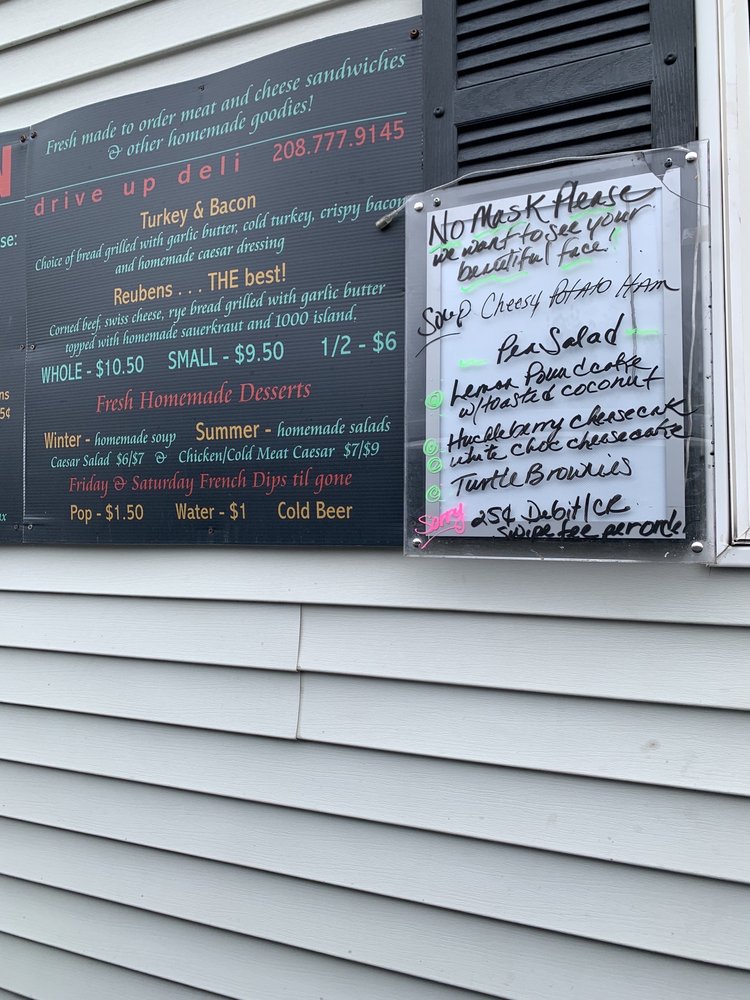 N
se:
ns
5¢
Fresh made to order meat and cheese sandwiches
& other homemade goodies!
drive up deli 208.777.9145
Turkey & Bacon
Choice of bread grilled with garlic butter, cold turkey, crispy bacon
and homemade caesar dressing
Reubens . . . THE best!
Corned beef, swiss cheese, rye bread grilled with garlic butter
topped with homemade sauerkraut and 1000 island.
WHOLE - $10.50 SMALL - $9.50 1/2 - $6
Fresh Homemade Desserts
Winter - homemade soup Summer - homemade salads
Caesar Salad $6/$7 & Chicken/Cold Meat Caesar $7/$9
Friday & Saturday French Dips til gone
Pop - $1.50 Water - $1 Cold Beer
No Mask Please
we want to see your
beautiful face!
Soup Cheesy Potato Ham
Pea Salad
Lemon Poundcake
w/toasted coconut
Huckleberry cheesecake
white choc cheesecake
Turtle Brownies
Sorry 25¢ Debit/CR
swipe fee per orde